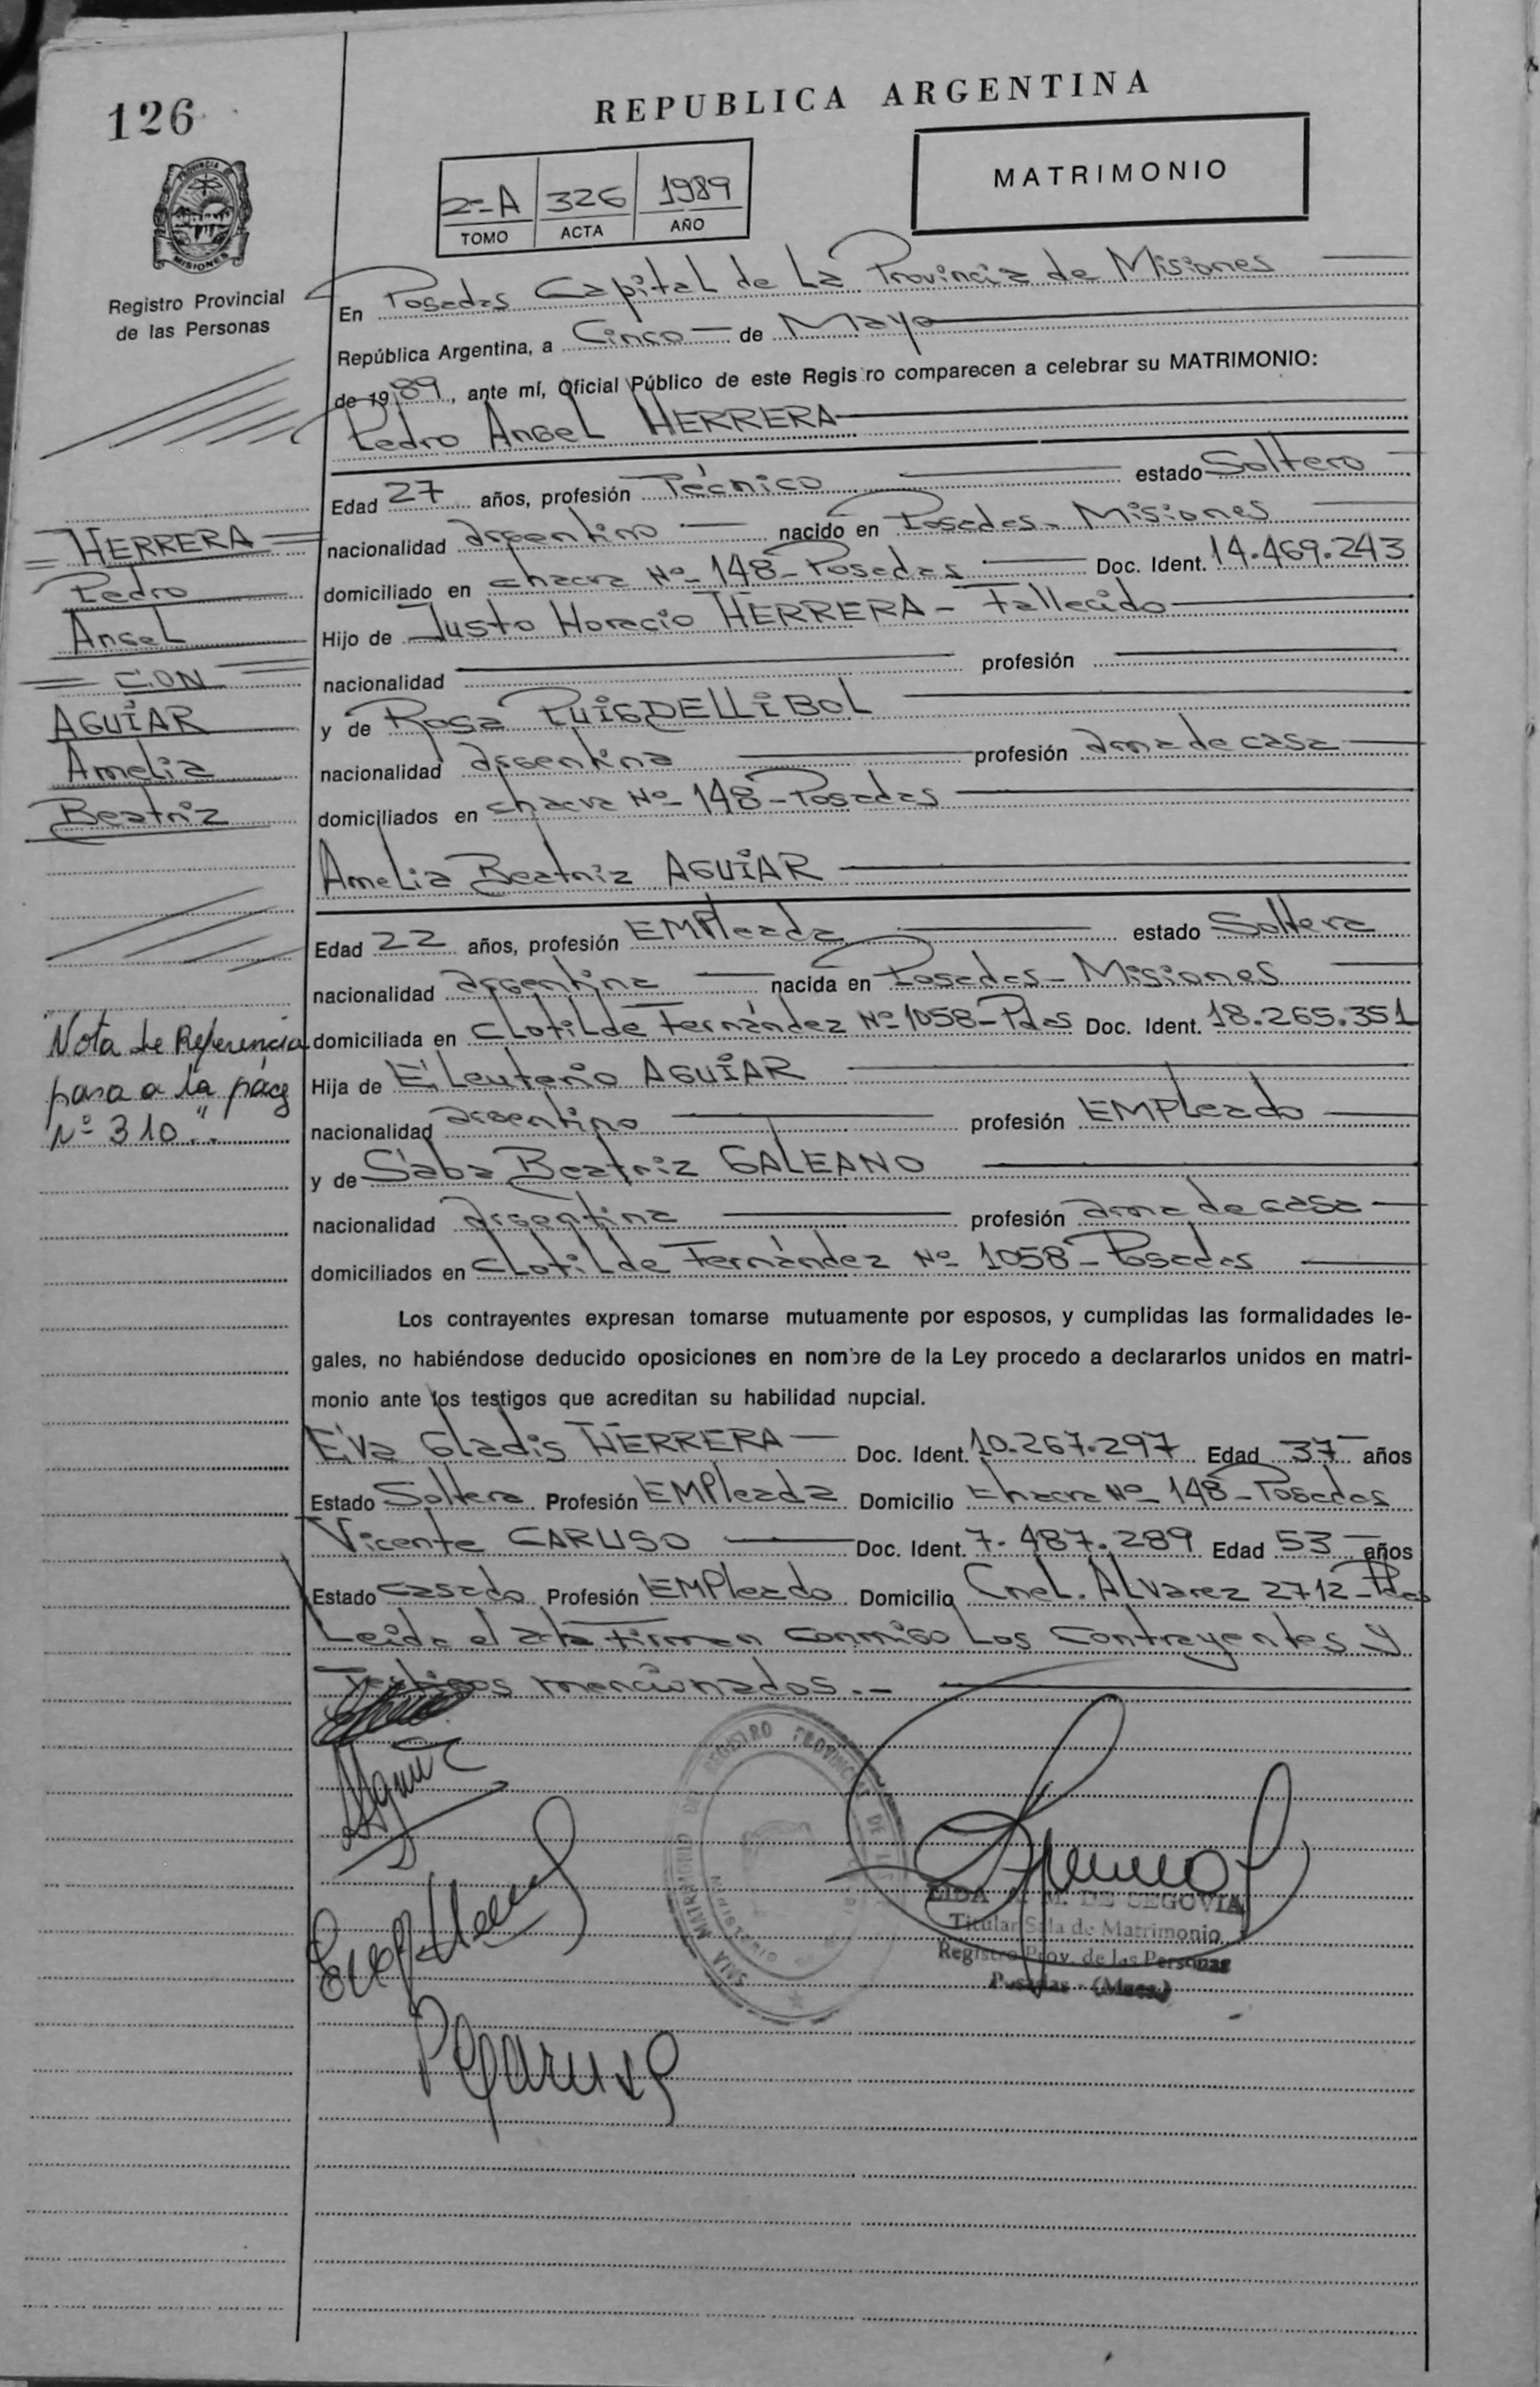 126
REPUBLICA ARGENTINA
PROVINCIA DE MISIONES
Registro Provincial
de las Personas
2º-A 326 1989
TOMO ACTA AÑO
MATRIMONIO
En Posadas Capital de La Provincia de Misiones
República Argentina, a Cinco de Mayo
de 1989, ante mí, Oficial Público de este Registro comparecen a celebrar su MATRIMONIO:
Pedro Angel HERRERA
Edad 27 años, profesión Técnico estado Soltero
nacionalidad argentino nacido en Posadas - Misiones
domiciliado en chacra Nº 148 - Posadas Doc. Ident. 14.469.243
Hijo de Justo Horacio HERRERA - Fallecido
nacionalidad profesión
y de Rosa PUIGDELLIBOL
nacionalidad argentina profesión ama de casa
domiciliados en chacra Nº 148 - Posadas
Amelia Beatriz AGUIAR
Edad 22 años, profesión EMPleada estado Soltera
nacionalidad argentina nacida en Posadas - Misiones
domiciliada en CLotiLde Fernández Nº 1058 - Pdas Doc. Ident. 18.265.351
Hija de ELeuterio AGUIAR
nacionalidad argentino profesión EMPLeado
y de Saba Beatriz GALEANO
nacionalidad argentina profesión ama de casa
domiciliados en CLotiLde Fernández Nº 1058 - Posadas
Los contrayentes expresan tomarse mutuamente por esposos, y cumplidas las formalidades le-
gales, no habiéndose deducido oposiciones en nombre de la Ley procedo a declararlos unidos en matri-
monio ante los testigos que acreditan su habilidad nupcial.
Eva Gladis HERRERA Doc. Ident. 10.267.297 Edad 37 años
Estado Soltera Profesión EMPleada Domicilio chacra Nº 148 - Posadas
Vicente CARUSO Doc. Ident. 7.487.289 Edad 53 años
Estado casado Profesión EMPleado Domicilio CneL. ALvarez 2712 - Pdas
Leida el acta Firman conmigo Los Contrayentes y
Testigos mencionados.-
HERRERA
Pedro
AngeL
CON
AGUIAR
Amelia
Beatriz
Nota de Referencia
pasa a la pág
Nº 310".
SALA MATRIMONIO DEL REGISTRO PROVINCIAL DE LAS
M. DE SEGOVIA
Titular Sala de Matrimonio
Registro Prov. de las Personas
Posadas - (Mnes.)